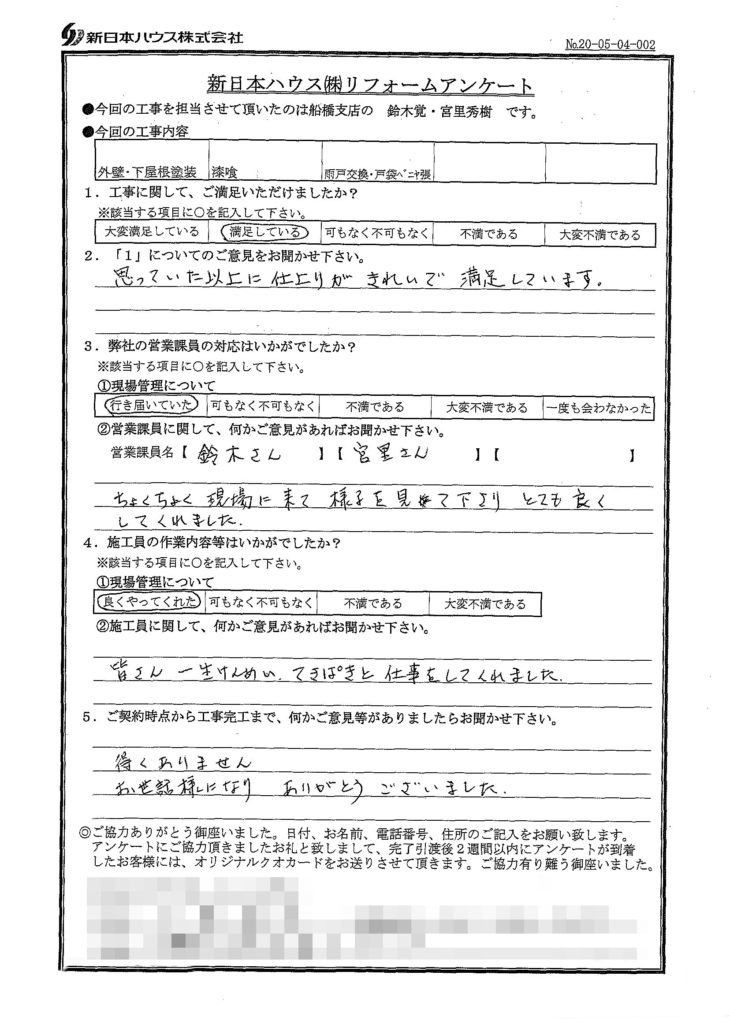 新日本ハウス株式会社
No.20-05-04-002
新日本ハウス㈱リフォームアンケート
●今回の工事を担当させて頂いたのは船橋支店の 鈴木覚・宮里秀樹 です。
●今回の工事内容
外壁・下屋根塗装 漆喰 雨戸交換・戸袋ﾍﾞﾆﾔ張
1．工事に関して、ご満足いただけましたか？
※該当する項目に○を記入して下さい。
大変満足している 満足している 可もなく不可もなく 不満である 大変不満である
2．「1」についてのご意見をお聞かせ下さい。
思っていた以上に仕上りがきれいで満足しています。
3．弊社の営業課員の対応はいかがでしたか？
※該当する項目に○を記入して下さい。
①現場管理について
行き届いていた 可もなく不可もなく 不満である 大変不満である 一度も会わなかった
②営業課員に関して、何かご意見があればお聞かせ下さい。
営業課員名【 鈴木さん 】【 宮里さん 】【 】
ちょくちょく現場に来て様子を見て下さりとても良く
してくれました.
4．施工員の作業内容等はいかがでしたか？
※該当する項目に○を記入して下さい。
①現場管理について
良くやってくれた 可もなく不可もなく 不満である 大変不満である
②施工員に関して、何かご意見があればお聞かせ下さい。
皆さん 一生けんめい、てきぱきと仕事をしてくれました.
5．ご契約時点から工事完工まで、何かご意見等がありましたらお聞かせ下さい。
得くありません
お世話様になり ありがとうございました.
◎ご協力ありがとう御座いました。日付、お名前、電話番号、住所のご記入をお願い致します。
アンケートにご協力頂きましたお礼と致しまして、完了引渡後2週間以内にアンケートが到着
したお客様には、オリジナルクオカードをお送りさせて頂きます。ご協力有り難う御座いました。